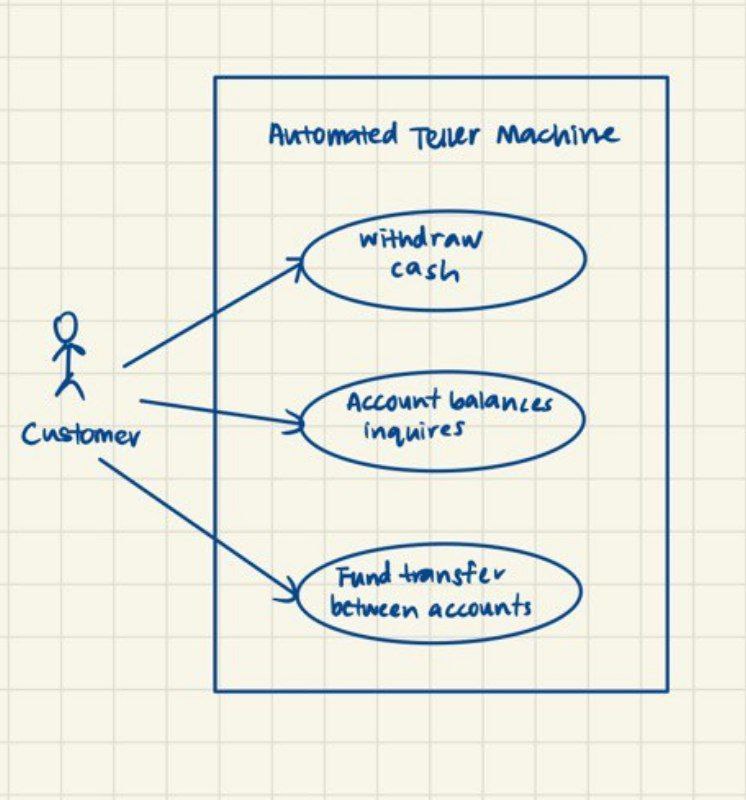 Automated Teller Machine
withdraw
cash
Account balances
inquires
Customer
Fund transfer
between accounts